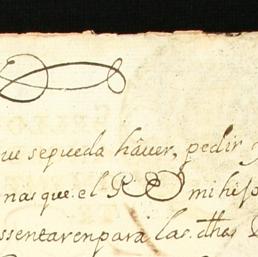 ue sepueda hâuer, pedir y
nas que el P. D mi hijo
ssentaren para las dhas